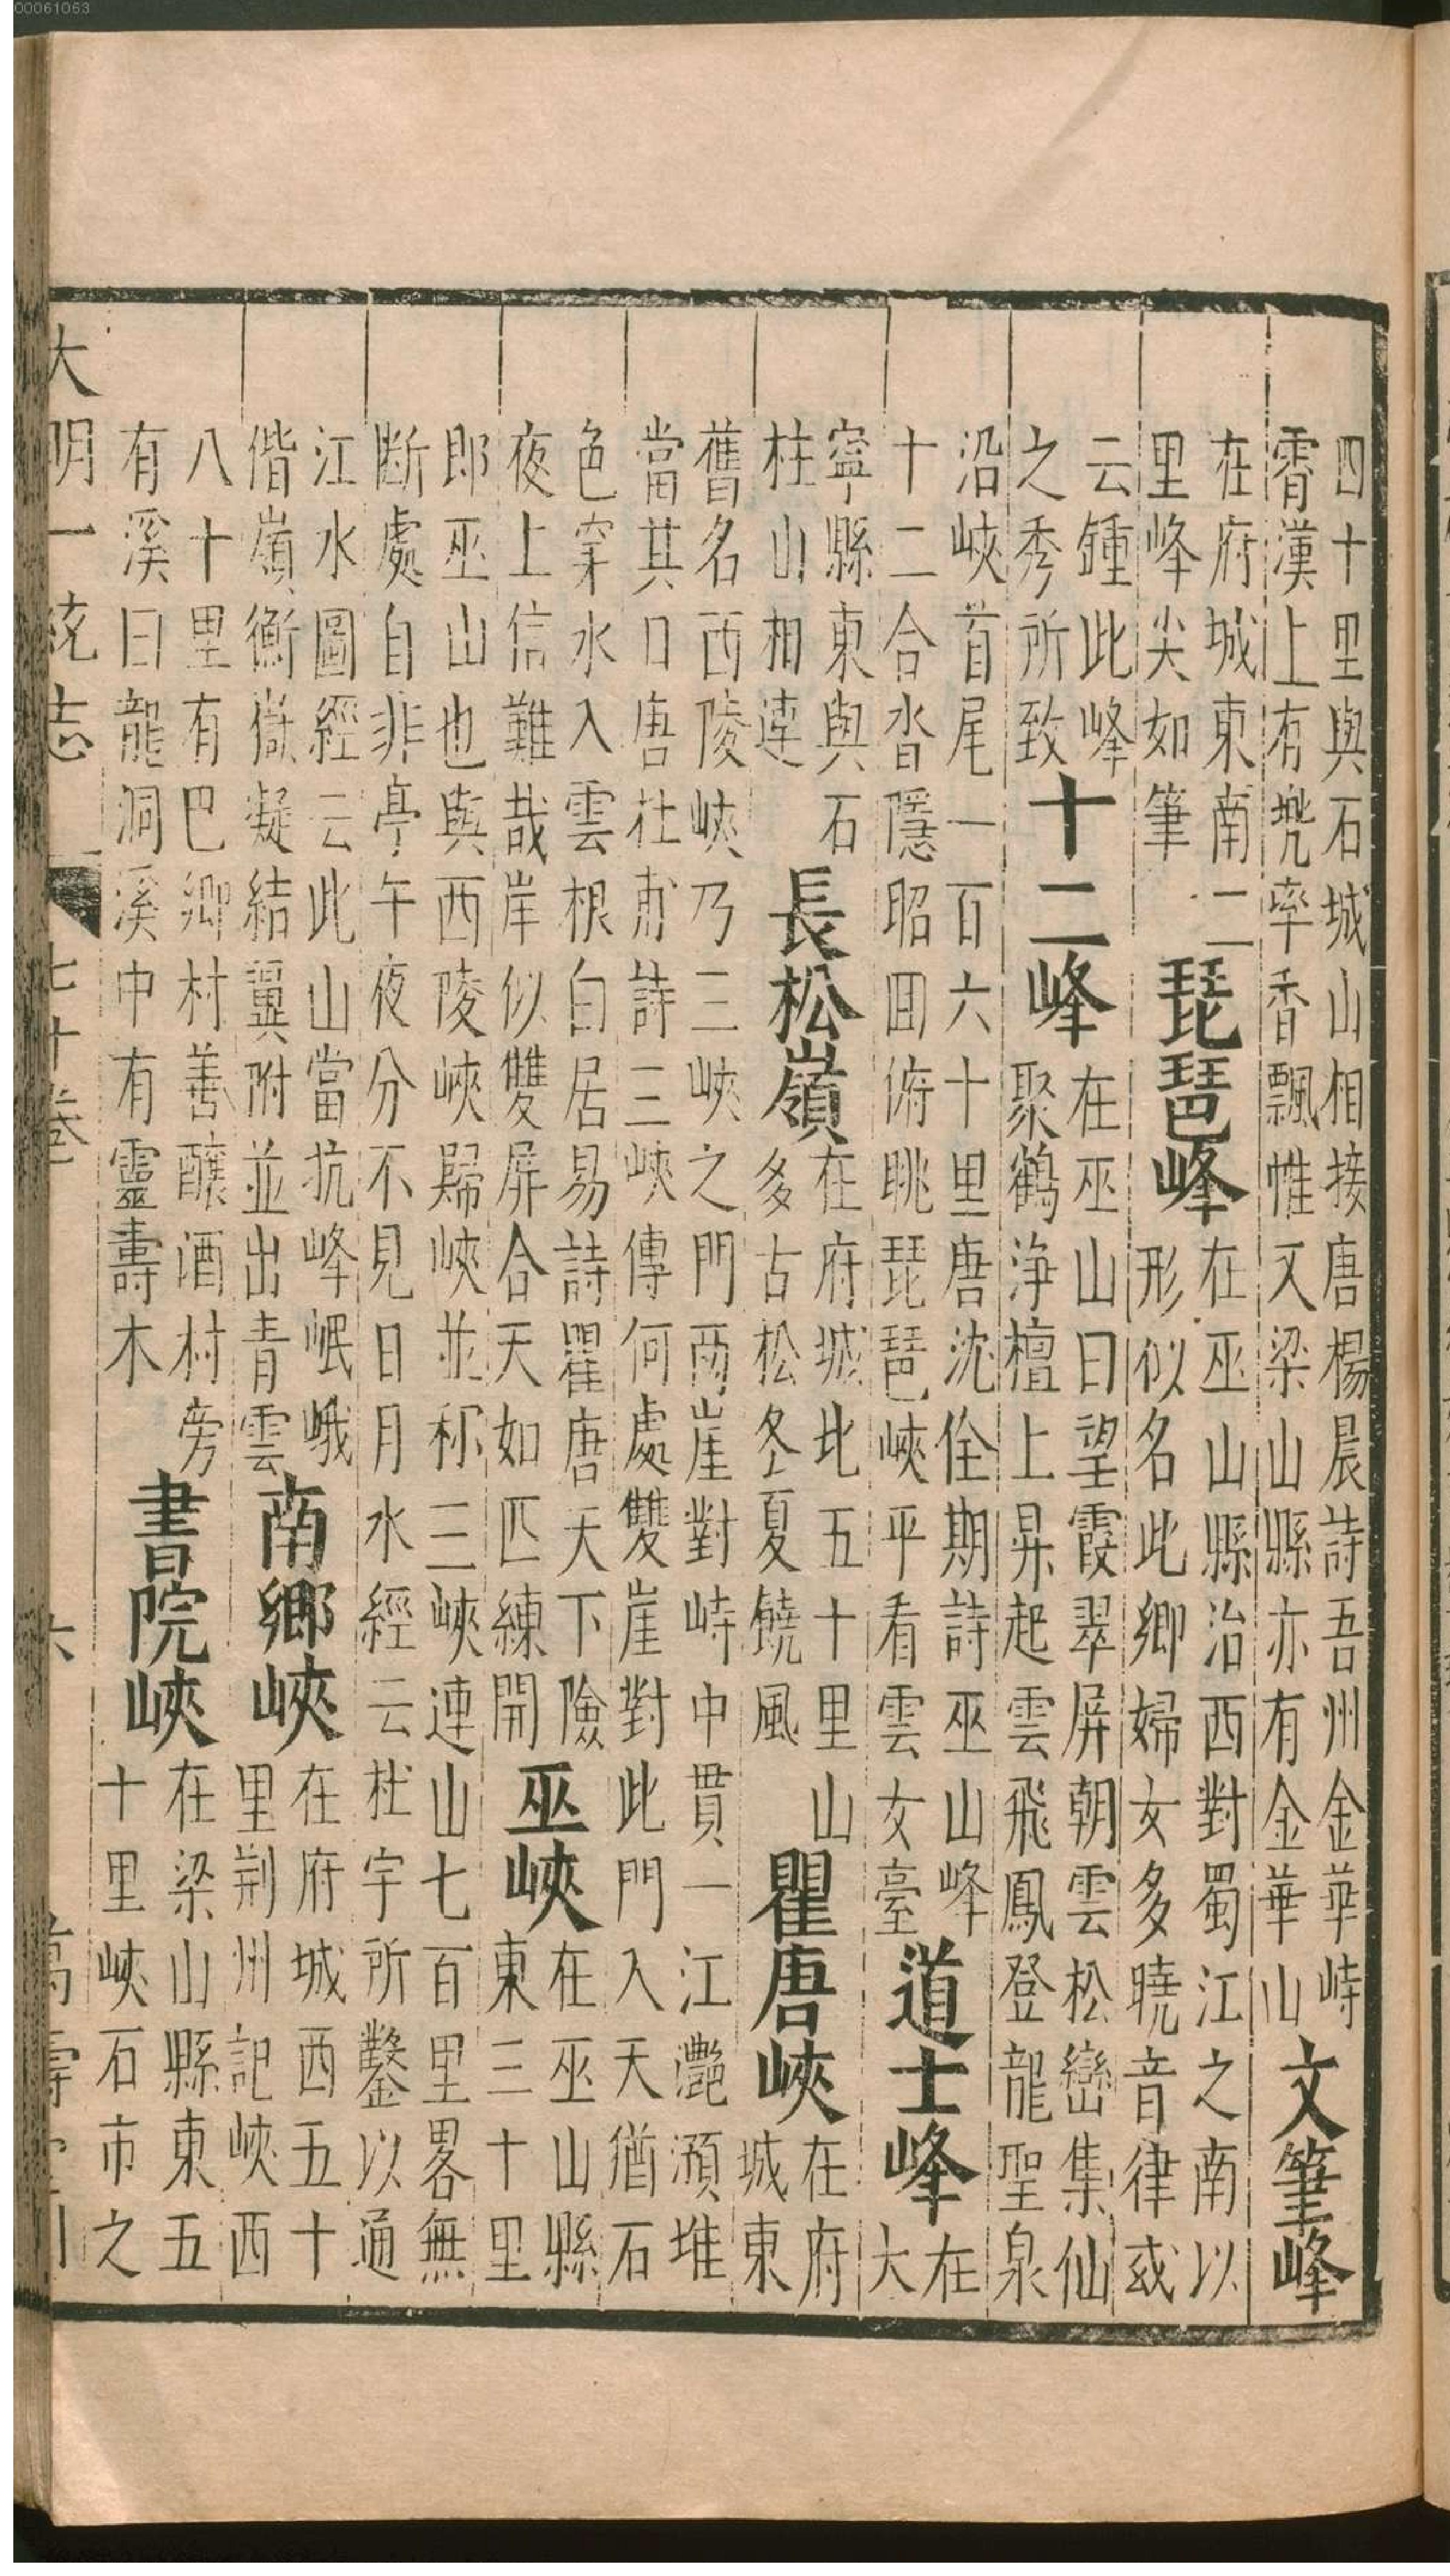 四十里與石城山相接唐楊晨詩吾州金華峙
霄漢上有兜率香飄帷又梁山縣亦有金華山
文筆峰
在府城東南二
里峰尖如筆
琵琶峰
在巫山縣治西對蜀江之南以
形似名此鄉婦女多曉音律或
云鍾此峰
之秀所致
十二峰
在巫山曰望霞翠屏朝雲松巒集仙
聚鶴淨壇上昇起雲飛鳳登龍聖泉
沿峽首尾一百六十里唐沈佺期詩巫山峰
十二合沓隱昭囬俯眺琵琶峽平看雲女臺
道士峰
在
大
寧縣東與石
柱山相連
長松嶺
在府城北五十里山
多古松冬夏饒風
瞿唐峽
在府
城東
舊名西陵峽乃三峽之門兩崖對峙中貫一江灧澦堆
當其口唐杜甫詩三峽傳何處雙崖對此門入天猶石
色穿水入雲根白居易詩瞿唐天下險
夜上信難哉岸似雙屏合天如匹練開
巫峽
在巫山縣
東三十里
郎巫山也與西陵峽歸峽並称三峽連山七百里畧無
斷處自非亭午夜分不見日月水經云杜宇所鑿以通
江水圖經云此山當抗峰岷峨
偕嶺衡嶽凝結翼附並出青雲
南鄉峽
在府城西五十
里荊州記峽西
八十里有巴鄉村善釀酒村旁
有溪曰龍洞溪中有靈壽木
書院峽
在梁山縣東五
十里峽石市之
大明一統志 七十卷 六 萬壽堂刊